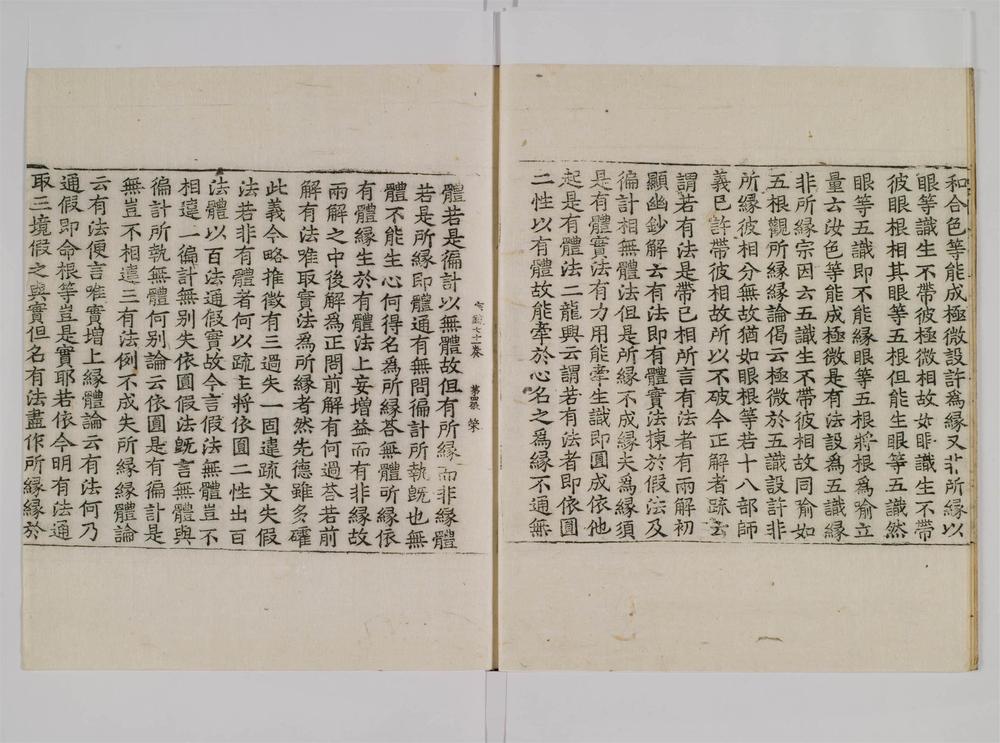 和合色等能成極微設許為緣又非所緣以
眼等識生不帶彼極微相故如眼識生不帶
彼眼根相其眼等五根但能生眼等五識然
眼等五識即不能緣眼等五根將根為喻立
量云汝色等能成極微是有法設為五識緣
非所緣宗因云五識生不帶彼相故同喻如
五根觀所緣緣論偈云極微於五識設許非
所緣彼相分無故猶如眼根等若十八部師
義已許帶彼相故所以不破今正解者疏云
謂若有法是帶已相所言有法者有兩解初
顯幽鈔解云有法即有體實法揀於假法及
徧計相無體法但是所緣不成緣夫為緣須
是有體實法有力用能牽生識即圓成依他
起是有體法二龍興云謂若有法者即依圓
二性以有體故能牽於心名之為緣不通無
體若是徧計以無體故但有所緣而非緣體
若是所緣即體通有無問徧計所執旣也無
體不能生心何得名為所緣荅無體所緣依
有體緣生於有體法上妄增益而有非緣故
兩解之中後解為正問前解有何過荅若前
解有法唯取實法為所緣者然先德雖多確
此義今略推徵有三過失一固違疏文失假
法若非有體者何以疏主將依圓二性出百
法體以百法通假實故今言假法無體豈不
相違二徧計無別失依圓假法旣言無體與
徧計所執無體何別論云依圓是有徧計是
無豈不相違三有法例不成失所緣緣體論
云有法便言唯實增上緣體論云有法何乃
通假即命根等豈是實耶若依今明有法通
取三境假之與實但名有法盡作所緣緣於